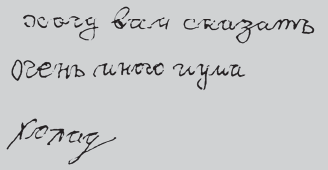 хочу вам сказать
очень много шума